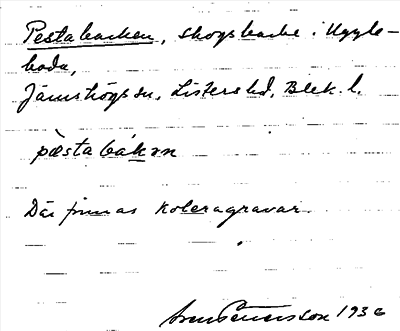 Pestabacken, skogsbacke i Uggle-
boda,
Jämshögs sn, Listers hd, Blek. l.
pæstabákən
Där finnas koleragravar.
1936